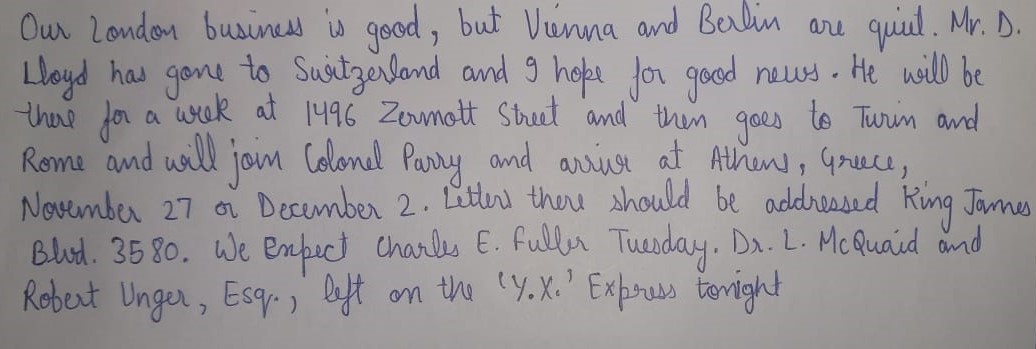 Our London business is good, but Vienna and Berlin are quiet. Mr. D.
Lloyd has gone to Switzerland and I hope for good news. He will be
there for a week at 1496 Zermott Street and then goes to Turin and
Rome and will join Colonel Parry and arrive at Athens, Greece,
November 27 or December 2. Letters there should be addressed King James
Blvd. 3580. We Expect Charles E. Fuller Tuesday. Dr. L. McQuaid and
Robert Unger, Esq., left on the 'Y.X.' Express tonight